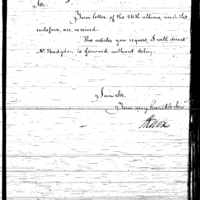 Sir.
Your letter of the 26th ultimo, and the
enclosures, are received.
The articles you request, I will direct
Mr. Hodgdon to forward without delay.
I am Sir
Your very humble Servt
HKnox